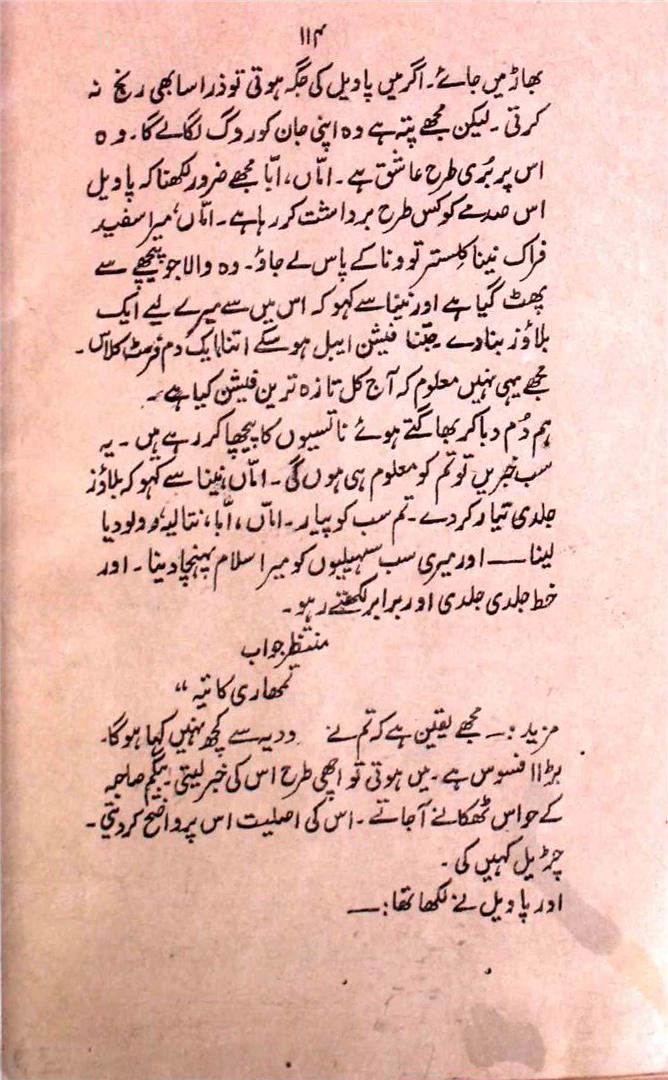 ۱۱۴
بھاڑ میں جائے۔ اگر میں پاویل کی جگہ ہوتی تو ذرا سا بھی رنج نہ
کرتی۔ لیکن مجھے پتہ ہے وہ اپنی جان کو روگ لگالے گا۔ وہ
اس پر بُری طرح عاشق ہے۔ امّاں، ابّا مجھے ضرور لکھنا کہ پاویل
اس صدمے کو کس طرح برداشت کر رہا ہے۔ امّاں، میرا سفید
فراک نینا کلستر توونا کے پاس لے جاؤ۔ وہ والا جو پیچھے سے
پھٹ گیا ہے اور نینا سے کہو کہ اس میں سے میرے لیے ایک
بلاؤز بنا دے جتنا فیشن ایبل ہو سکے اتنا ایک دم فرسٹ کلاس۔
مجھے یہی نہیں معلوم کہ آج کل تازہ ترین فیشن کیا ہے۔
ہم دُم دبا کر بھاگتے ہوئے ناتسیوں کا پیچھا کر رہے ہیں۔ یہ
سب خبریں تو تم کو معلوم ہی ہوں گی۔ امّاں، نینا سے کہو کہ بلاؤز
جلدی تیار کر دے۔ تم سب کو پیار۔ امّاں، ابّا، نتالیہ، وولودیا
لینا — اور میری سب سہیلیوں کو میرا سلام پہنچا دینا۔ اور
خط جلدی جلدی اور برابر لکھتے رہو۔
منتظر جواب
تمھاری کاتیہ“
مزید :۔ مجھے یقین ہے کہ تم نے ودیہ سے کچھ نہیں کہا ہوگا۔
بڑا افسوس ہے۔ میں ہوتی تو اچھی طرح اس کی خبر لیتی۔ بیگم صاحبہ
کے حواس ٹھکانے آجاتے۔ اس کی اصلیت اس پر واضح کر دیتی۔
چڑیل کہیں کی۔
اور پاویل نے لکھا تھا :—